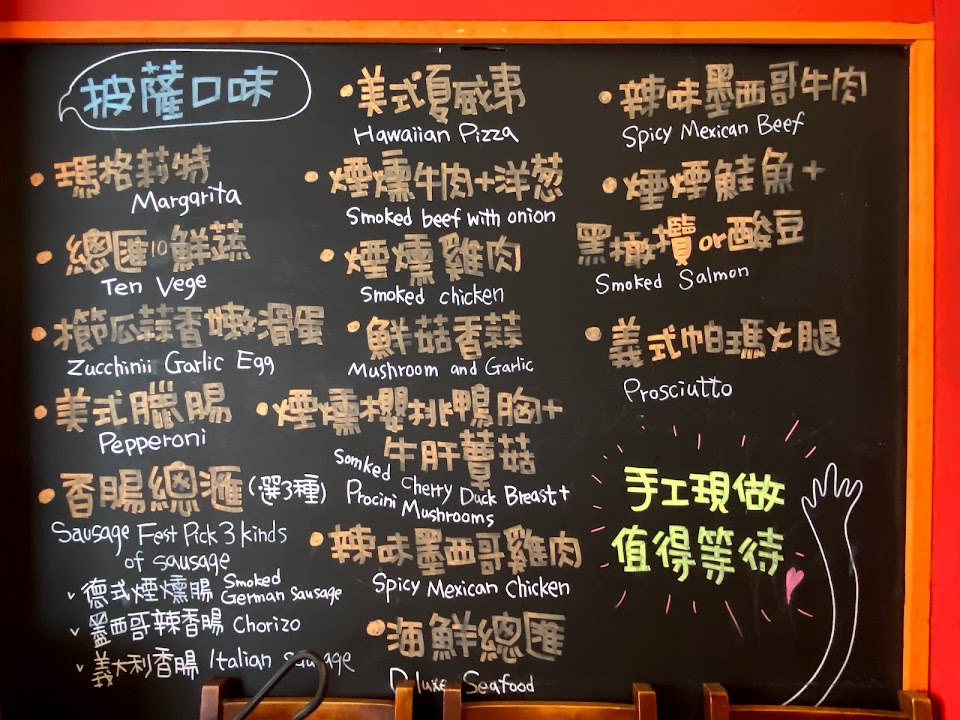 披薩口味
瑪格莉特
Margarita
總匯10鮮蔬
Ten Vege
櫛瓜蒜香嫩滑蛋
Zucchinii Garlic Egg
美式臘腸
Pepperoni
香腸總滙(選3種)
Sausage Fest Pick 3 kinds
of sausage
v 德式煙燻腸 Smoked
German Sausage
v 墨西哥辣香腸 Chorizo
v 義大利香腸 Italian sausage
美式夏威夷
Hawaiian Pizza
煙燻牛肉+洋葱
Smoked beef with onion
煙燻雞肉
Smoked chicken
鮮菇香蒜
Mushroom and Garlic
煙燻櫻桃鴨胸+
牛肝蕈菇
Somked Cherry Duck Breast+
Procini Mushrooms
辣味墨西哥雞肉
Spicy Mexican Chicken
海鮮總匯
Deluxe Seafood
辣味墨西哥牛肉
Spicy Mexican Beef
煙煙鮭魚+
黑橄欖or酸豆
Smoked Salmon
義式帕瑪火腿
Prosciutto
手工現做
值得等待